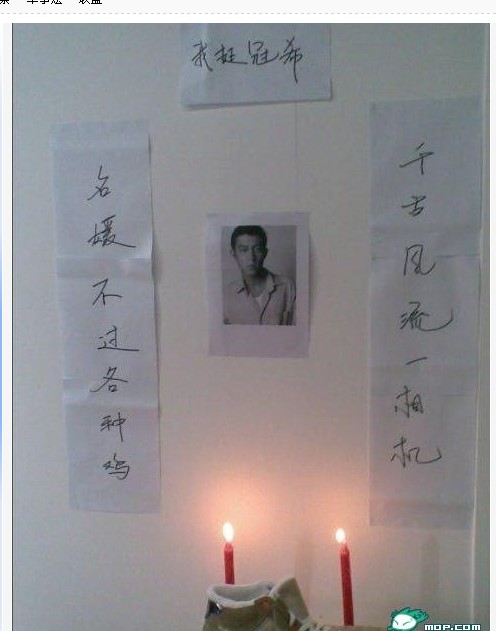 我挺冠希
千古风流一相机
名媛不过各种鸡
MOP.COM